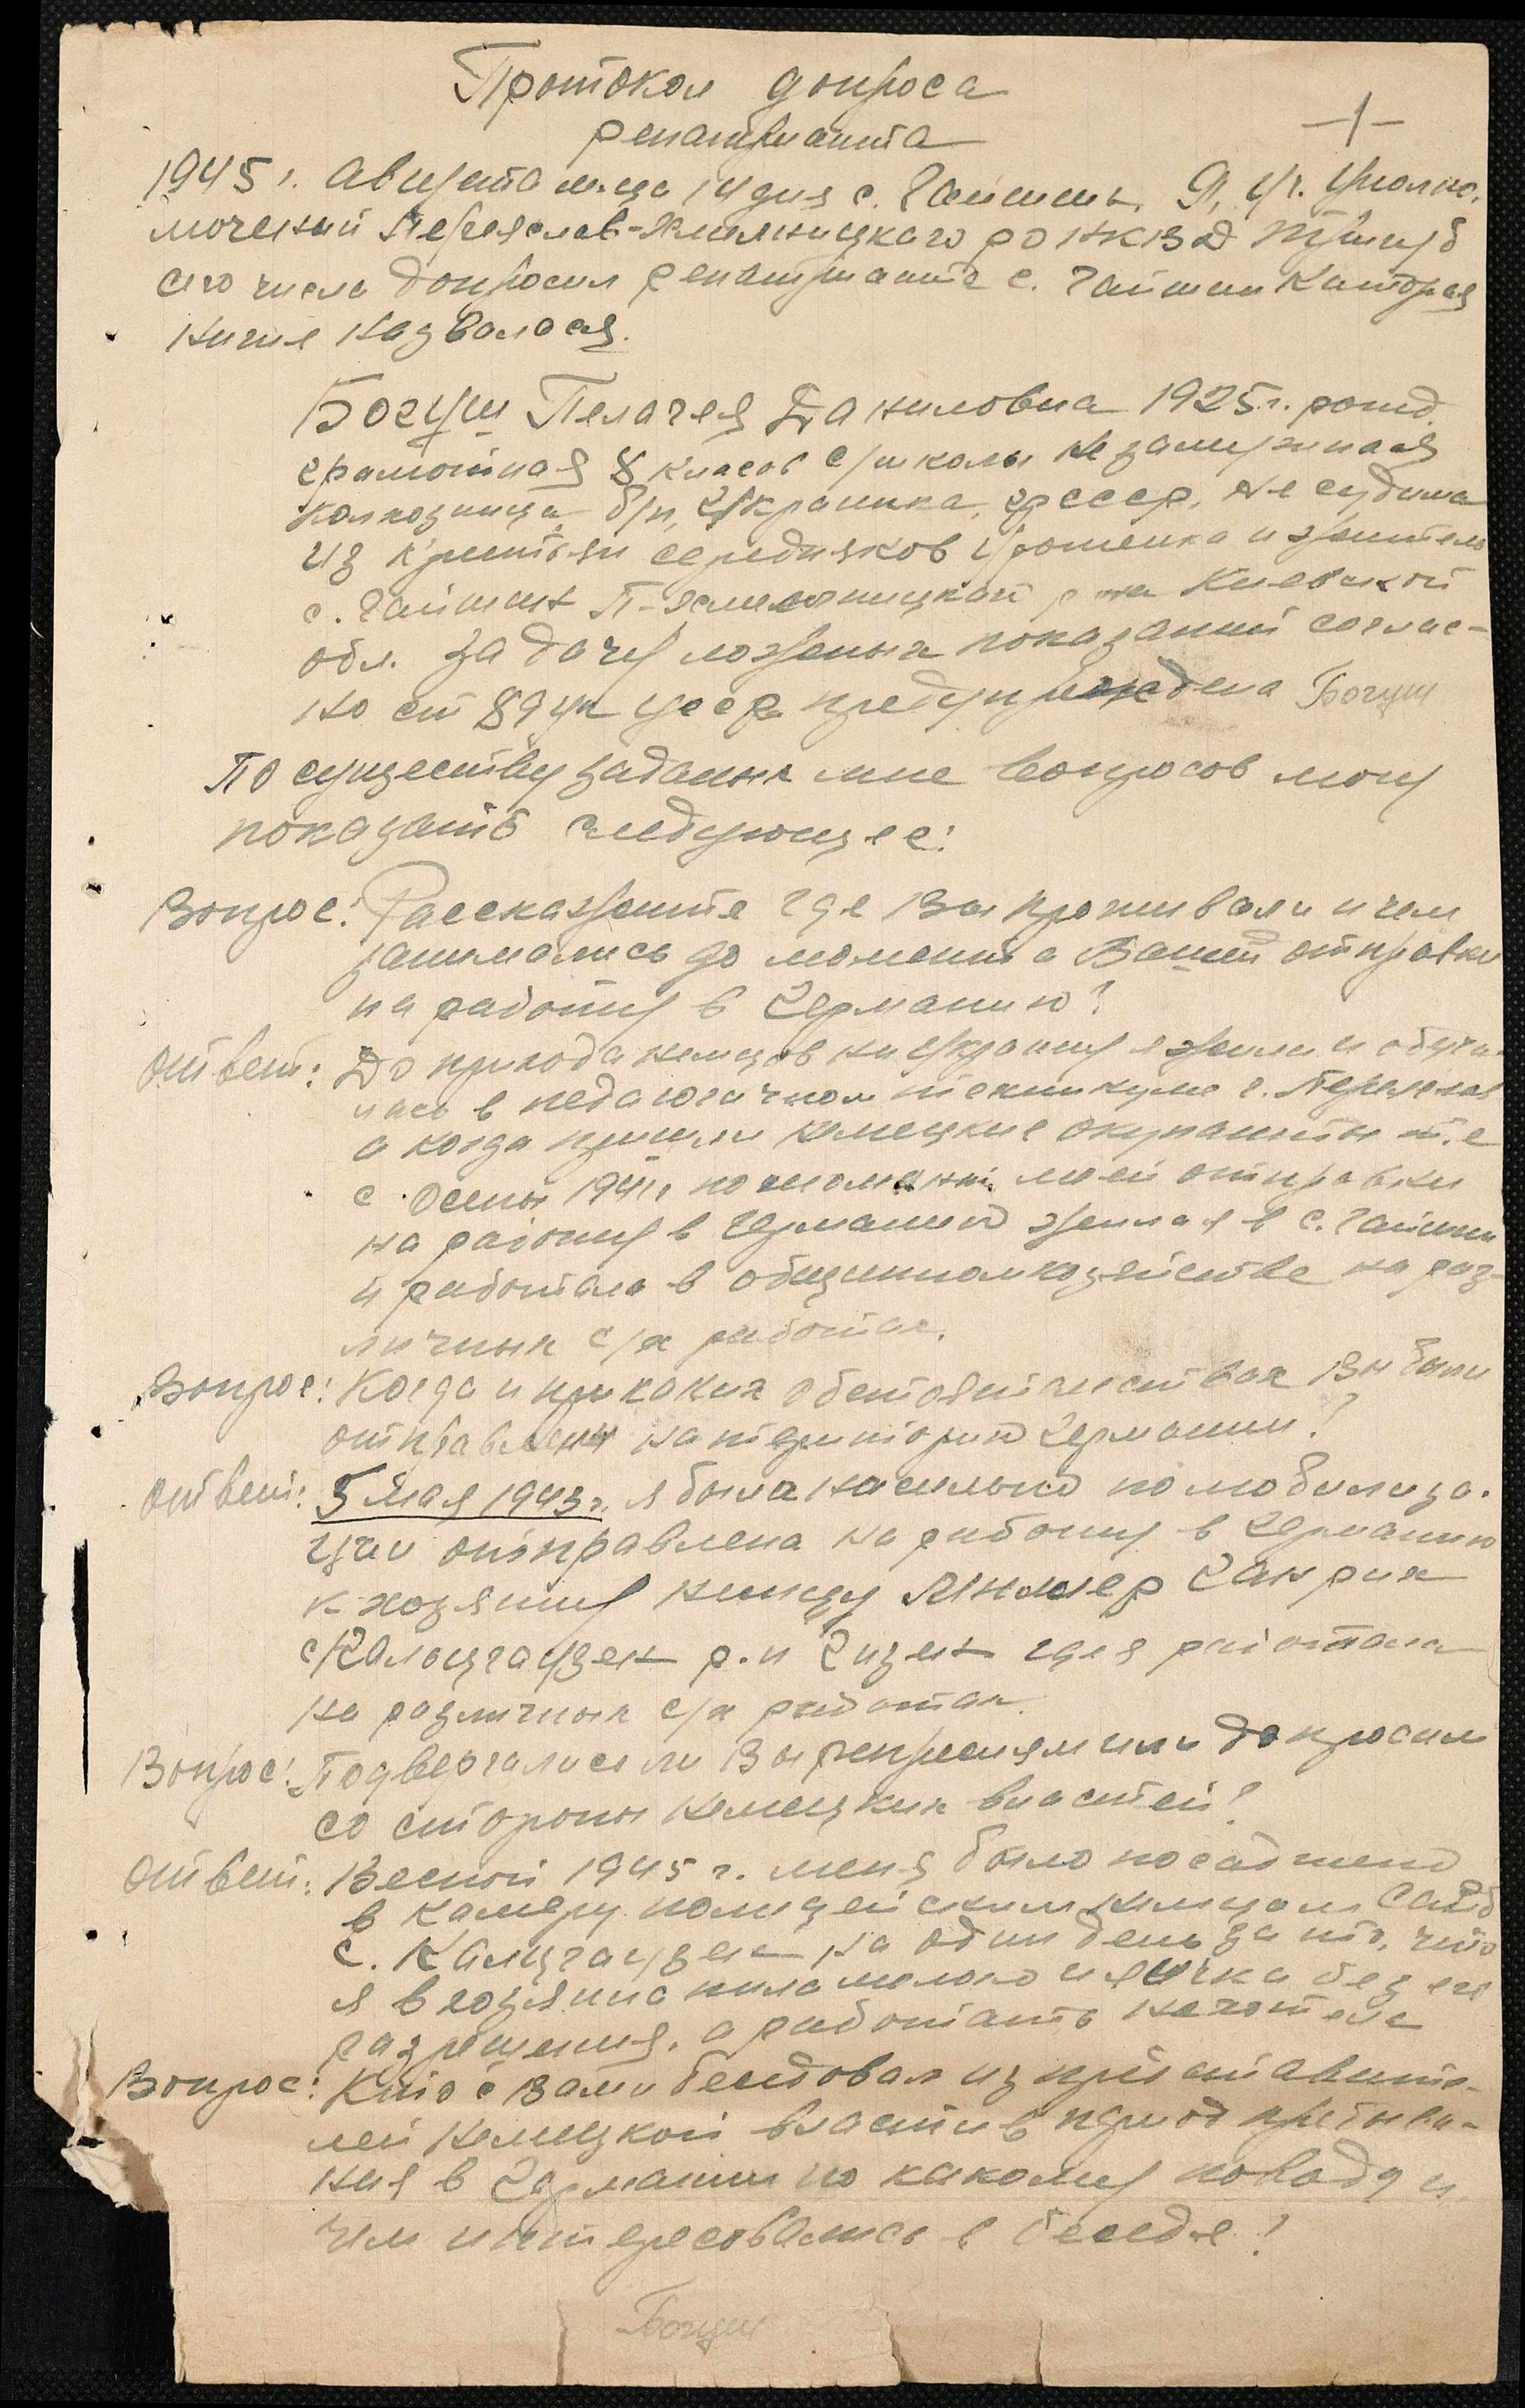 Протокол допроса
репатрианта
1945 г. Августа м-ца 14 дня с. Гайшин. Я, уч. уполно-
моченный Переяслав-Хмельницкаго РО НКВД
сего числа допросил репатрианта с. Гайшин Которая
ниже назвалася.
Богуш Пелагея Даниловна 1925 г. рожд.
грамотная 8 класов с/школы не замужная
колхозница, б/п, Украинка, гр СССР, не судима
из крестьян середняков уроженка и житель
с. Гайшин П-Хмельницкой р-на Киевской
обл. За дачу ложных показаний соглас-
но ст 89 ук усср предупреждена Богуш
По существу заданых мне вопросов могу
показать следующее:
Вопрос: Расскажите где Вы проживали и чем
занимались до момента Вашей отправки
на работу в Германию?
Ответ: До прихода немцов на украину я жила и обуча-
лась в педагогичном техникуме г. Переяслав
а когда пришли немецкие окупанты т.е
с осены 1941 г. по момент моей отправки
на работу в Германию жила я в с. Гайшин
и работала в общинном хозяйстве на раз-
личных с/х работах.
Вопрос: Когда и при каких обстоятельствах Вы были
отправлены на територию Германии?
Ответ: 5 Мая 1943 г. я была насильно по мобилиза-
ции отправлена на работу в Германию
к хозяину немцу Гянрих
с Кальцгаузен р.н Гизен где я работала
на различных с/х работах.
Вопрос: Подвергались ли Вы репресиям или допросам
со стороны немецких властей?
Ответ: Весной 1945 г. меня было посаджено
в камеру полицейским немцом
с. Калцгаузен на один день за то, что
я в хозяина пила молоко и яечка без его
разрешения, а работать не хотела
Вопрос: Кто с Вами беседовал из представите-
лей немецкой власти в период пребыва-
ния в Германии по какому поводу и
чем интересовались в беседе?
Богуш